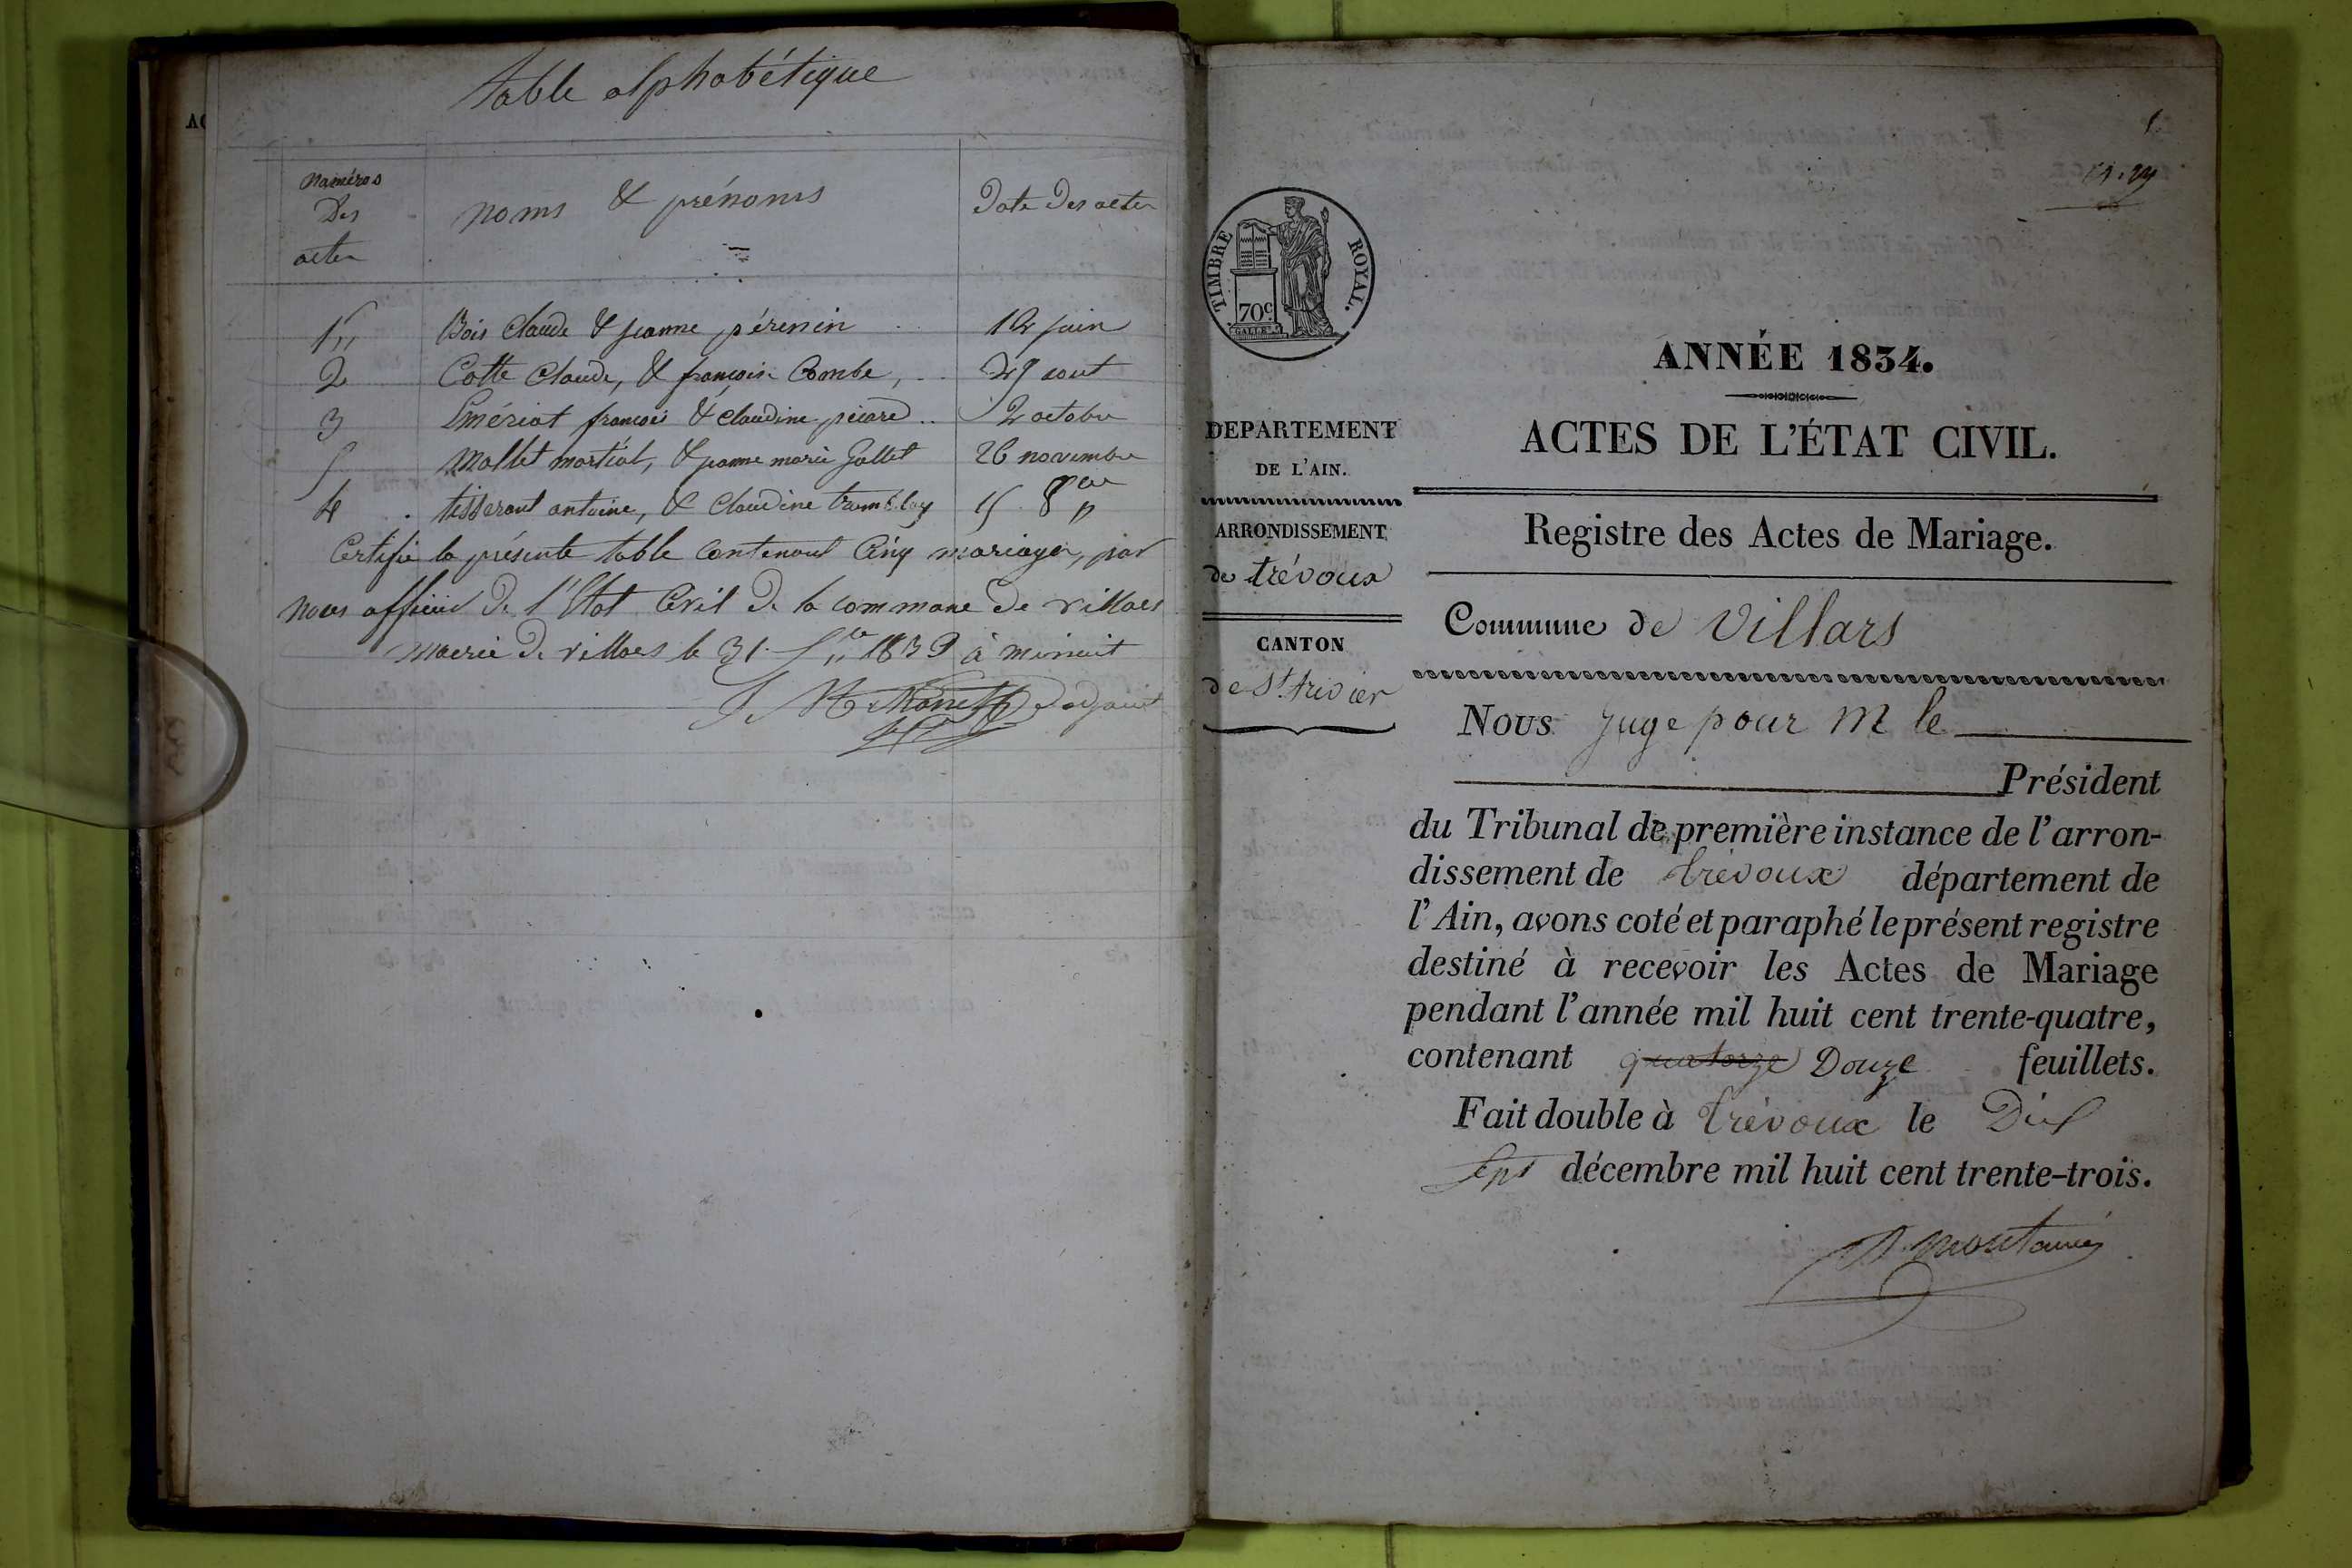 table alphabétique
numéros
Des
actes
noms & prénoms
Date Des actes
1 Bois Claude & jeanne pérenin 12 juin
2 Cotte Claude, & françoise Combe, 29 aout
3 Emériat françois & Claudine picard .. 2 octobre
5 Mallet martial, & jeanne marie Gallet 26 novembre
4 tisserant antoine, & Claudine tramblay 15 8bre
Certifié la présente table Contenant Cinq mariages, par
nous officier De l'Etat Civil De la commune De villars
Mairie De villars le 31 1833 à minuit
1
TIMBRE ROYAL.
70c
GALLE
ANNÉE 1834.
DEPARTEMENT
DE L'AIN.
ACTES DE L'ÉTAT CIVIL.
ARRONDISSEMENT
de trévoux
Registre des Actes de Mariage.
CANTON
de St trivier
Commune de Villars
Nous Juge pour M le
Président
du Tribunal de première instance de l'arron-
dissement de trévoux département de
l'Ain, avons coté et paraphé le présent registre
destiné à recevoir les Actes de Mariage
pendant l'année mil huit cent trente-quatre,
contenant quatorze Douze feuillets.
Fait double à trévoux le Dix
Sept décembre mil huit cent trente-trois.